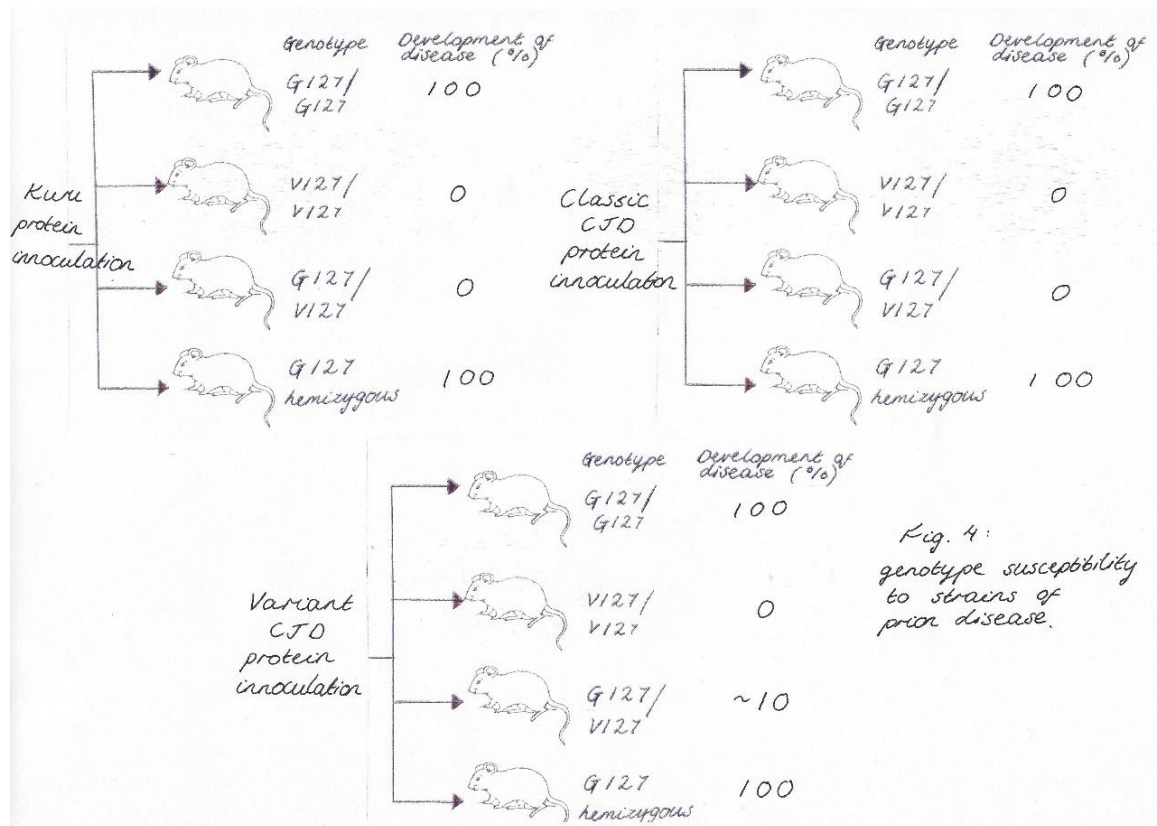 Genotype Development of
disease (%)
G127/
G127
100
V127/
V127
0
G127/
V127
0
G127
hemizygous
100
Kuru
protein
innoculation
Genotype Development of
disease (%)
G127/
G127
100
V127/
V127
0
G127/
V127
0
G127
hemizygous
100
Classic
CJD
protein
innoculation
Genotype Development of
disease (%)
G127/
G127
100
V127/
V127
0
G127/
V127
~10
G127
hemizygous
100
Variant
CJD
protein
innoculation
Fig. 4:
genotype susceptibility
to strains of
prion disease.